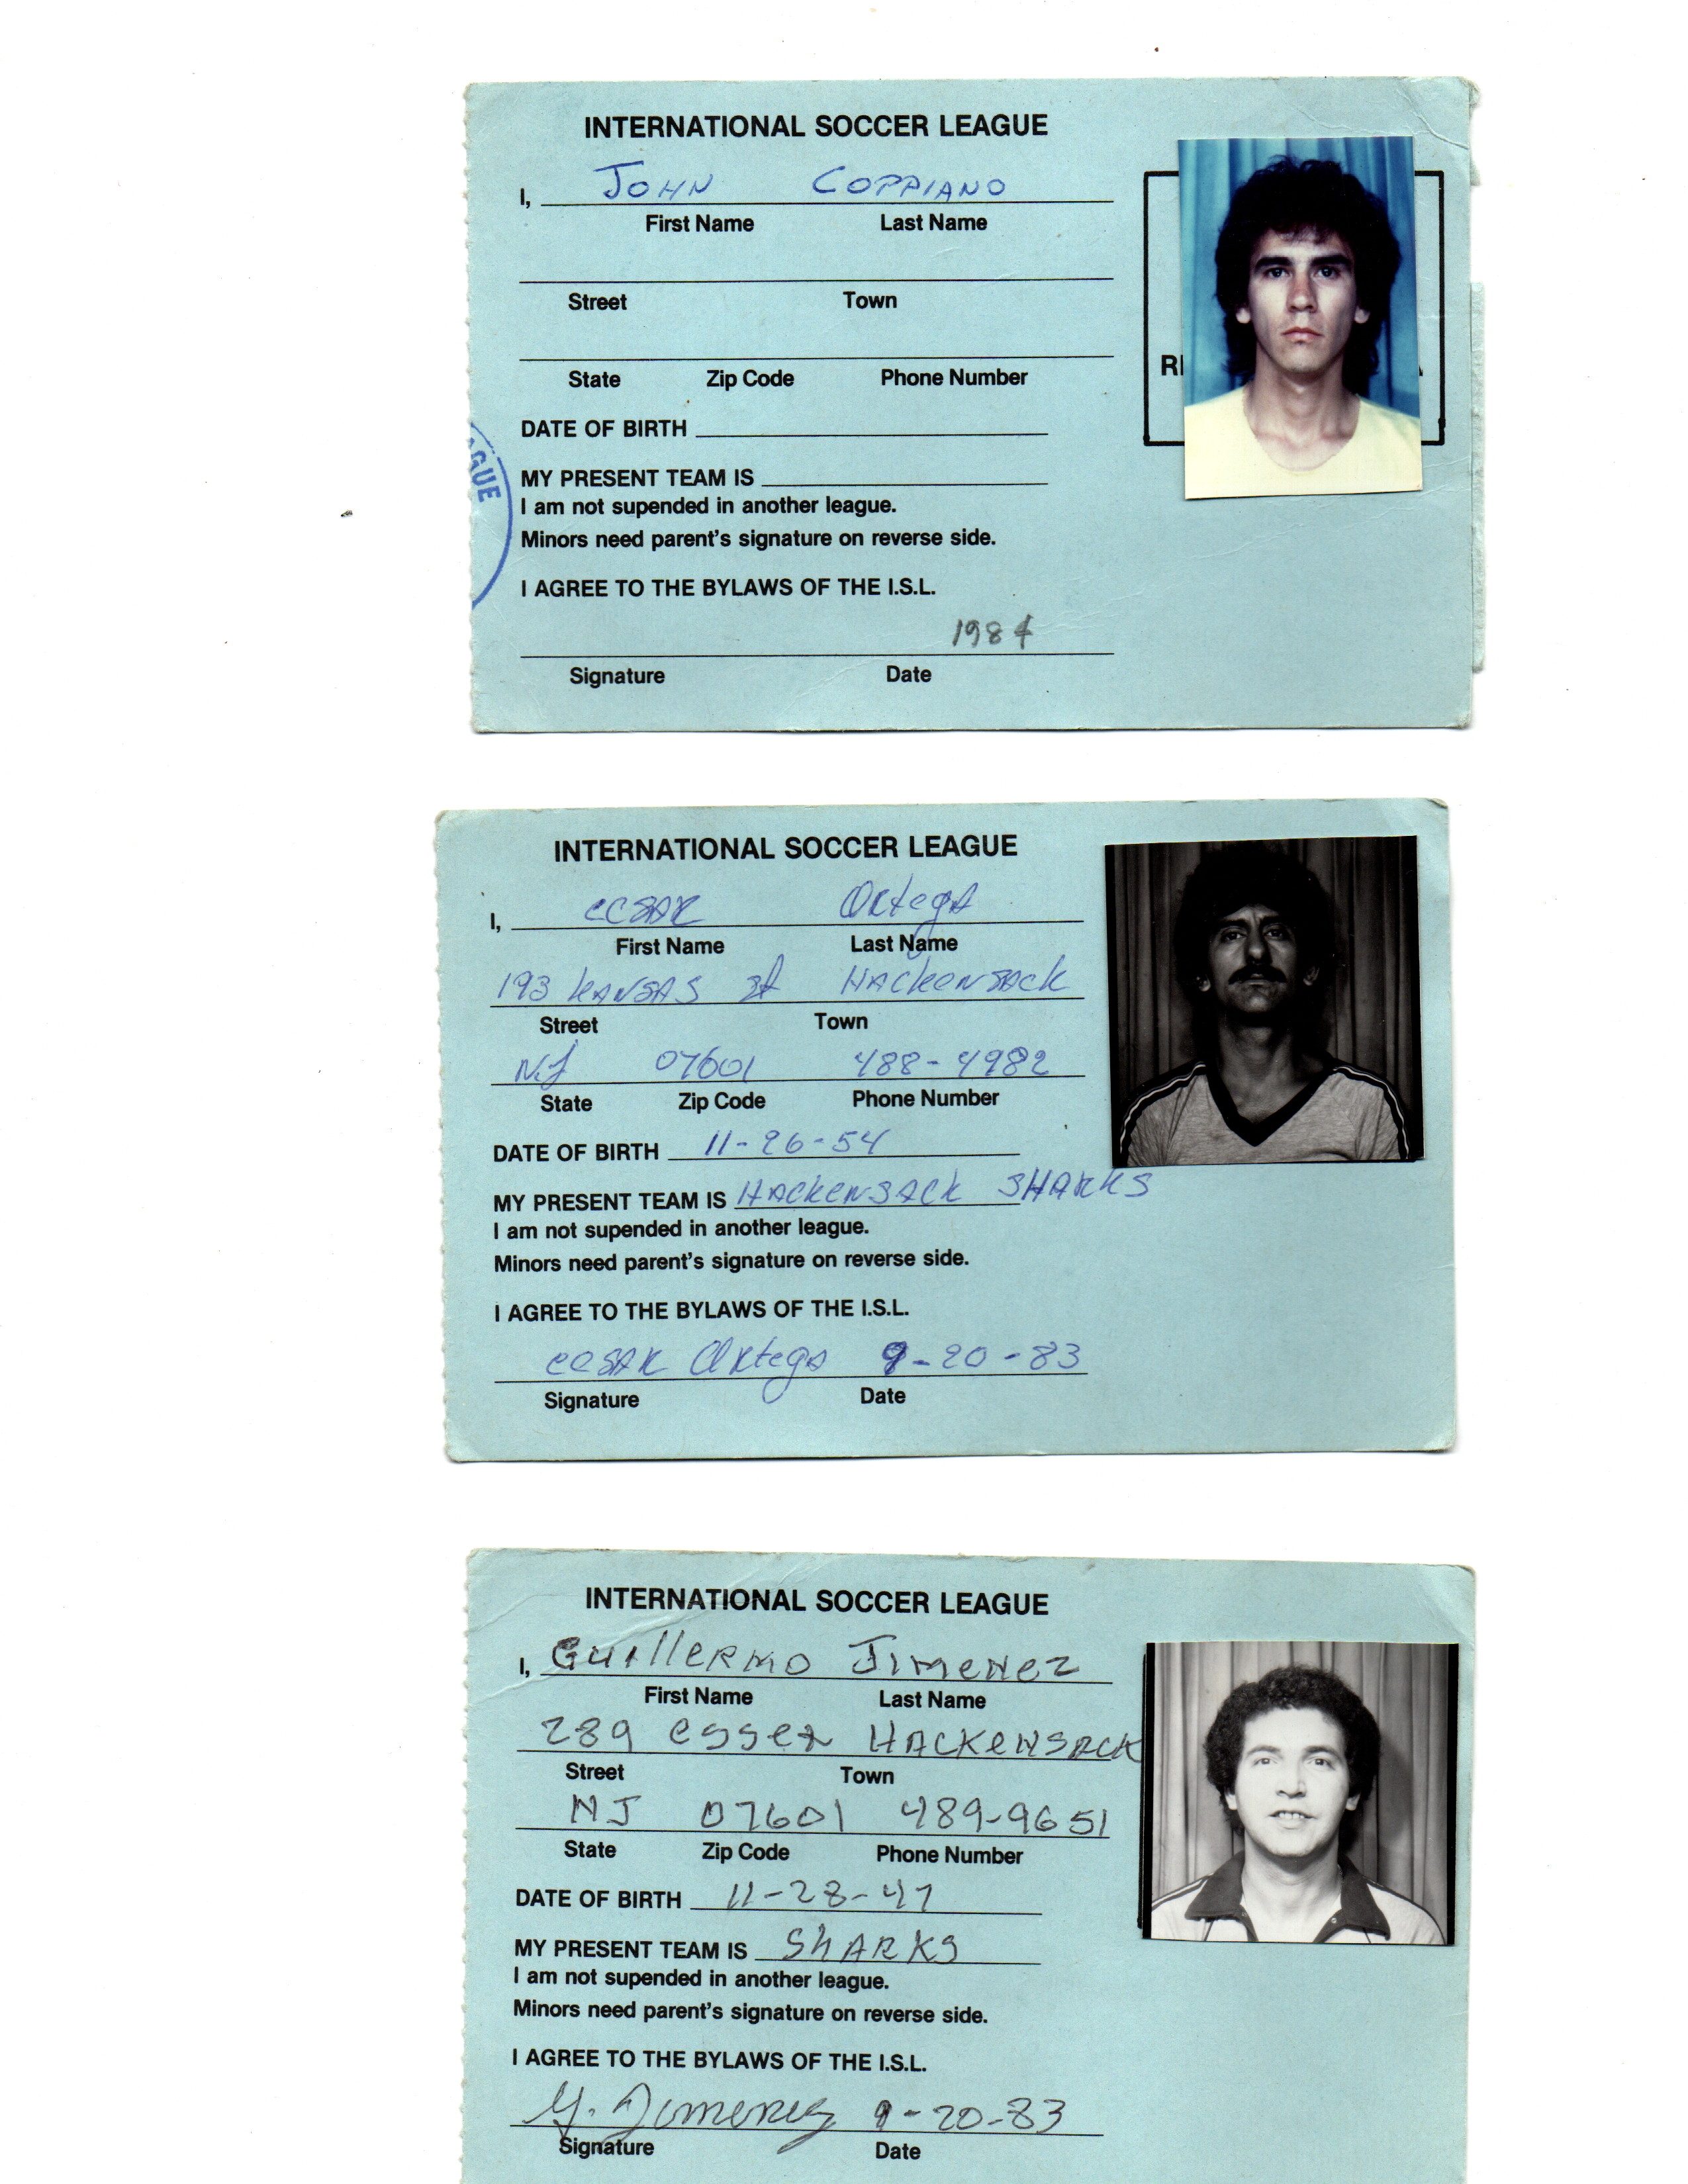 INTERNATIONAL SOCCER LEAGUE
I, JOHN COPPIANO
First Name Last Name
Street Town
R
State Zip Code Phone Number
DATE OF BIRTH
AGUE
MY PRESENT TEAM IS
I am not supended in another league.
Minors need parent's signature on reverse side.
I AGREE TO THE BYLAWS OF THE I.S.L.
1984
Signature Date
INTERNATIONAL SOCCER LEAGUE
I, CESAR Ortega
First Name Last Name
193 KANSAS st HACkenSACk
Street Town
NJ 07601 488-4982
State Zip Code Phone Number
DATE OF BIRTH 11-26-54
MY PRESENT TEAM IS HACkenSACk SHARKS
I am not supended in another league.
Minors need parent's signature on reverse side.
I AGREE TO THE BYLAWS OF THE I.S.L.
CESAR Ortega 9-20-83
Signature Date
INTERNATIONAL SOCCER LEAGUE
I, GuillerMO JiMeNez
First Name Last Name
289 essex HACKeNSACK
Street Town
NJ 07601 489-9651
State Zip Code Phone Number
DATE OF BIRTH 11-28-47
MY PRESENT TEAM IS ShARKS
I am not supended in another league.
Minors need parent's signature on reverse side.
I AGREE TO THE BYLAWS OF THE I.S.L.
G. Jimenez 9-20-83
Signature Date